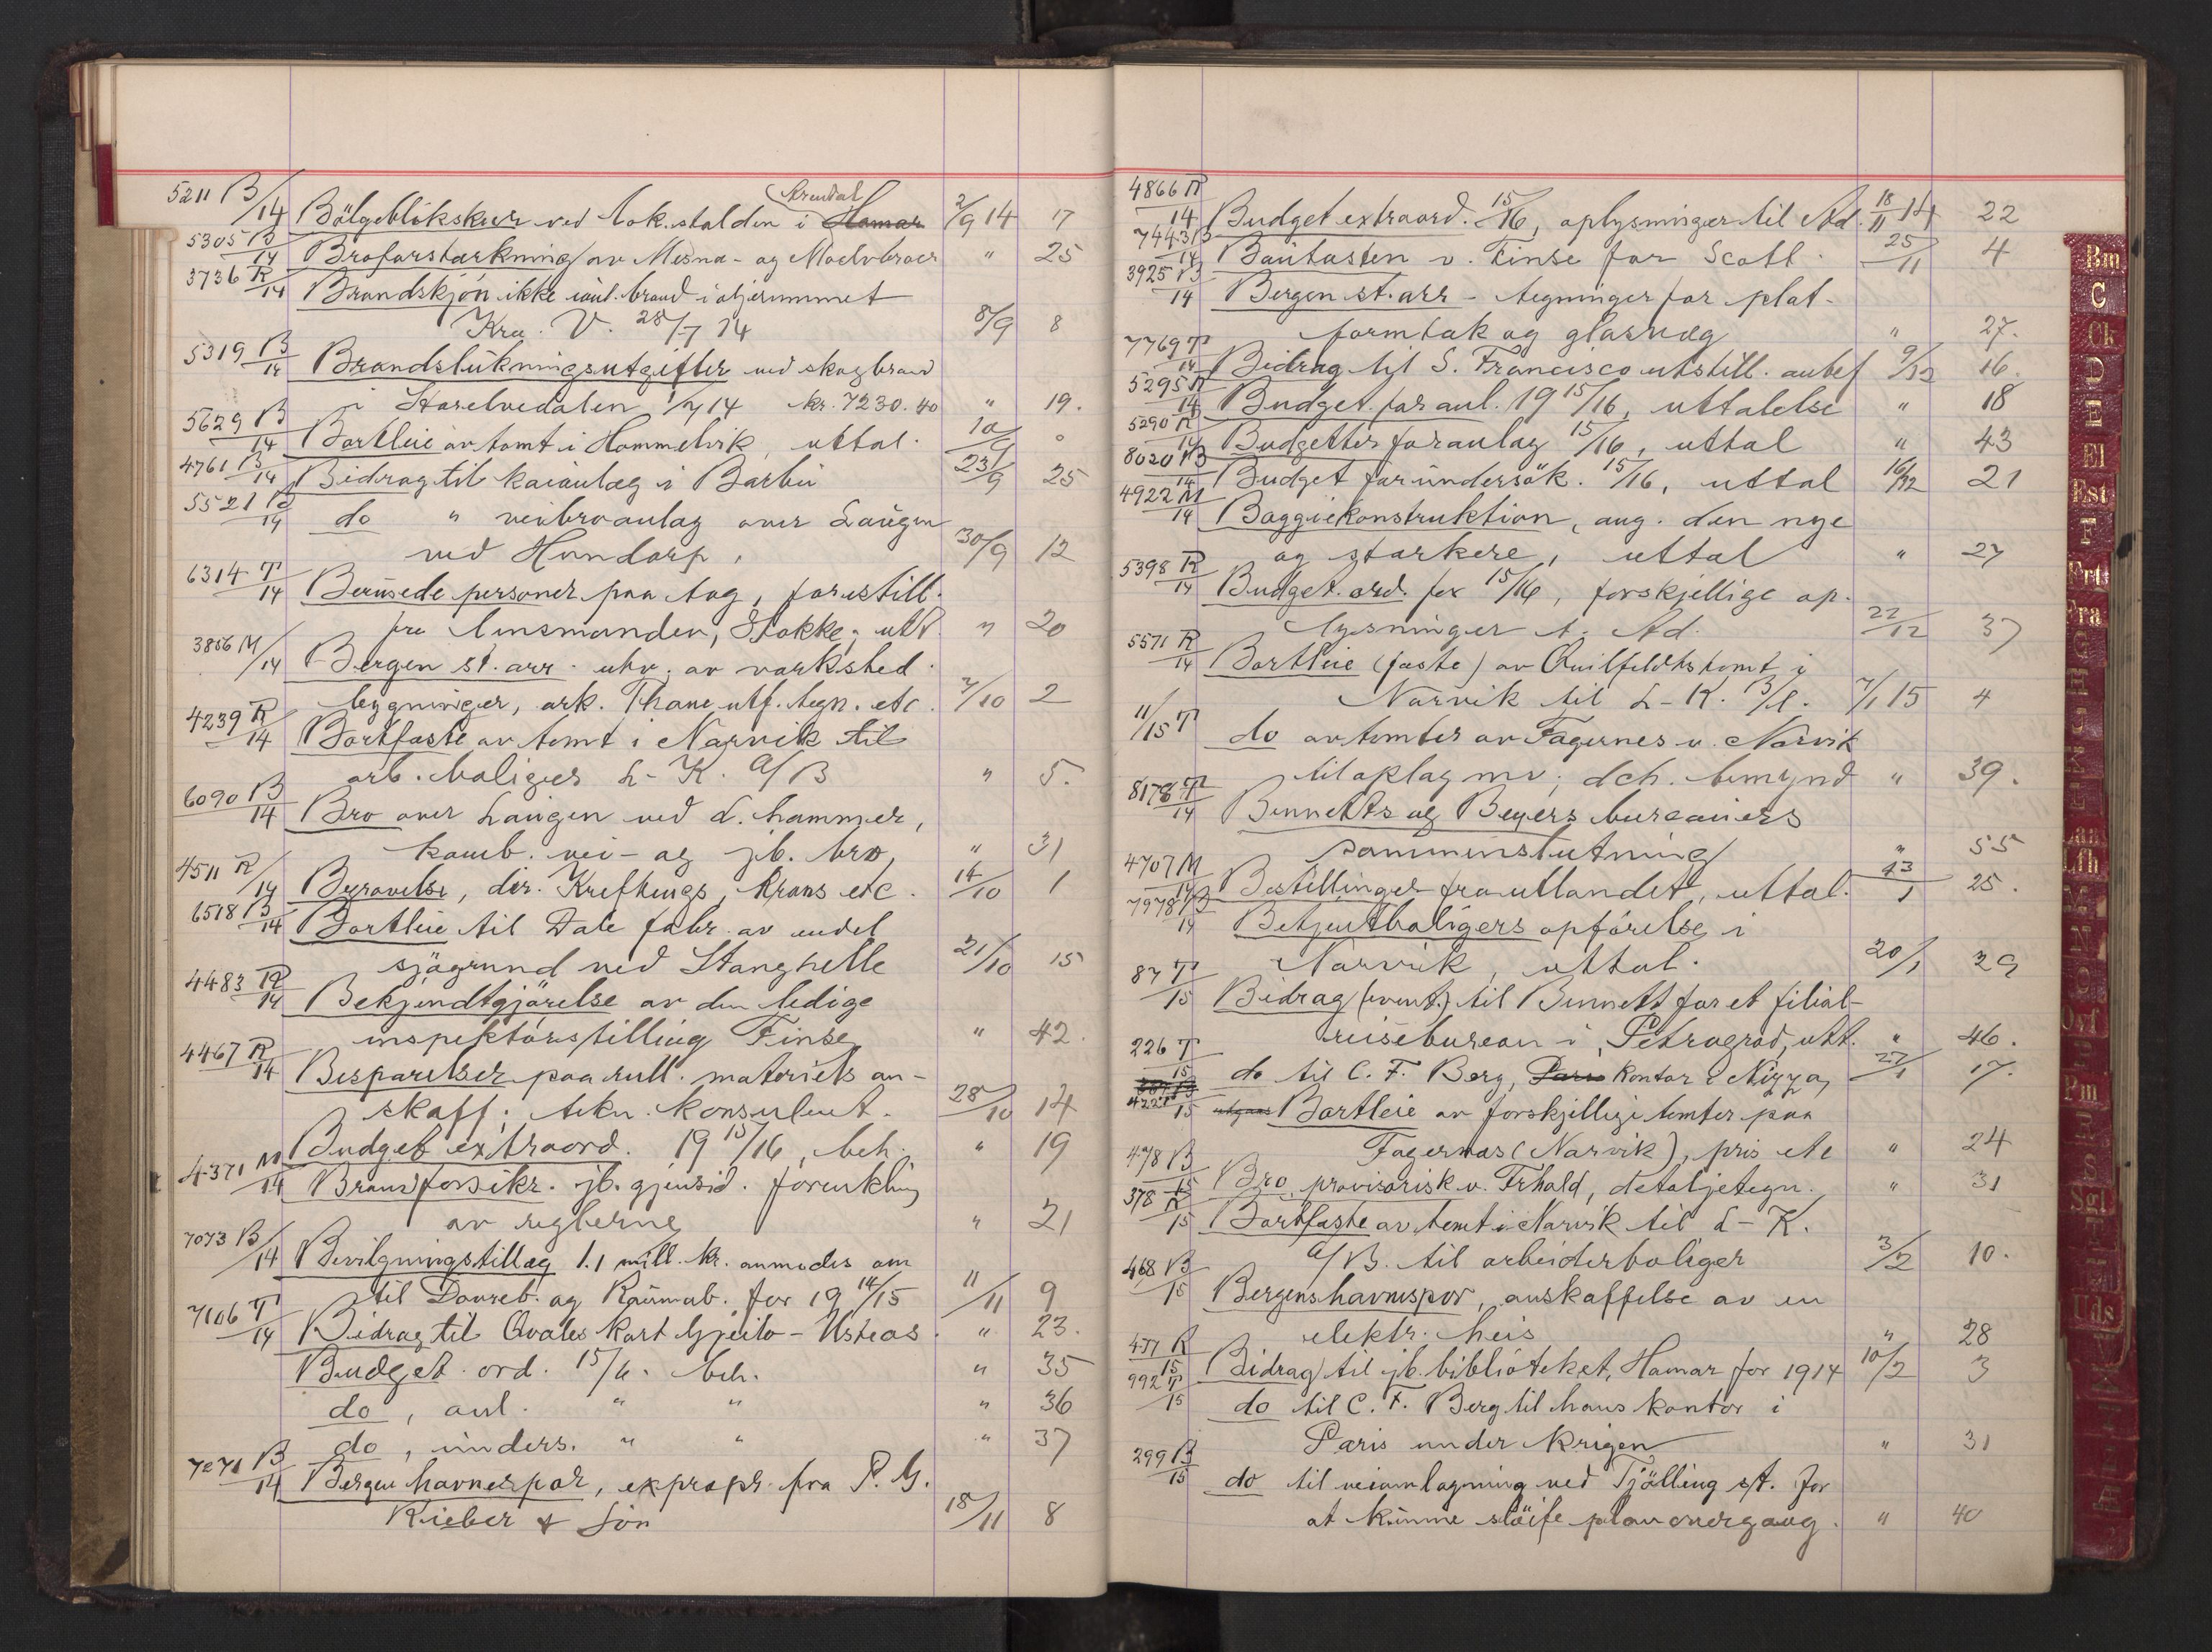 5211 B/14 Bölgeblikskur ved lok.stalden i Hamar Arendal 2/9 14 17
5305 B/14 Broforstærkning av Mesna- og Moelvbroer " 25
3736 R/14 Brandskjön ikke inkl. brand i oljerummet
Kra. V. 28/7 14 8/9 8
5319 B/14 Brandslukningsutgifter ved skogbrand
i Storelvedalen 1/7 14 kr. 7230.40 " 19.
5629 B/14 Bortleie av tomt i Hommelvik, uttal.
4761 B/14 Bidrag til kaianlæg i Barbu 23/9 25
5521 B/14 do " veibroanlæg over Laugen
ved Hundorp, 30/9 12
6314 T/14 Berusede personer paa tog, forestill.
fra lensmanden, Stokke; utt. " 20
3856 M/14 Bergen st. arr. utv. av verksted
bygninger, ark. Thams utf. tegn. etc. 7/10 2
4239 R/14 Bortfæste av tomt i Narvik til
arb. boliger L-K. A/B " 5.
6090 B/14 Bro over Laugen ved L. hammer,
komb. vei- og jb. bro, " 31
4511 R/14 Begravelse, dir. Kreftings, krans etc. 14/10 1
6518 B/14 Bortleie til Dale fabr. av endel
sjøgrund ved Stanghelle 21/10 15
4483 R/14 Bekjendtgjörelse av den ledige
inspektörstilling Finse " 42.
4467 R/14 Besparelser paa rull. materiels an-
skaff; tekn. konsulent. 28/10 14
Budget extraord. 19 15/16, beh. " 19
4371 M/14 Brandforsikr. jb. gjensid. forenkling
av reglerne " 21
7073 B/14 Bevilgningstillæg 1.1 mill. kr. anmodes om
til Dovreb. og Raumab. for 19 14/15 11/11 9
7106 T/14 Bidrag til Qvales kart Gjeilo-Ustaos. " 23.
Budget ord. 15/6. beh. " 35
do, anl. " " " 36
do, unders. " " " 37
7271 B/14 Bergen havnespor, expropr. fra P. G.
Rieber & Sön 18/11 8
4866 R/14 Budget extraord. 15/16, oplysninger til Ad. 18/11 14 22
7443 B/14 Bautasten v. Finse for Scott. 25/11 4
3925 B/14 Bergen st. arr - tegninger for plat-
formtak og glasvæg " 27.
7769 T/14 Bidrag til S. Francisco utstill. anbef 9/12 16.
5295 R/14 Budget for anl. 19 15/16, uttalelse " 18
5290 R/14 Budgetter for anlæg 15/16, uttal " 43
8020 B/14 Budget for undersök. 15/16, uttal 16/12 21
4922 M/14 Boggiekonstruktion, ang. den nye
og sterkere, uttal " 27
5398 R/14 Budget. ord. for 15/16, forskjellige op-
lysninger t. Ad. 22/12 37
5571 R/14 Bortleie (fæste) av Quilfeldts tomt i
Narvik til L-K. 7/1 15 4
11/15 T do av tomter av Fagernes v. Narvik
til oplag mv; dch. bemynd " 39.
8178 T/14 Bennetts og Beyers bureauers
sammenslutning " 55
4707 M/14 Bestillinger fra utlandet, uttal. 13/1 25.
7978 B/14 Betjentboligers opförelse i
Narvik, uttal. 20/1 29
87 T/15 Bidrag (event.) til Bennett for et filial-
reisebureau i Petrograd, utt. " 46.
226 T/15 do til C. F. Berg, Paris kontor i Nizza, 27/1 17.
422/15 Bortleie av forskjellige tomter paa
Fagernæs (Narvik), pris etc " 24
478 B/15 Bro, provisorisk v. Frhald, detaljetegn. " 31
378 R/15 Bortfæste av tomt i Narvik til L-K.
A/B. til arbeiderboliger 3/2 10.
468 B/15 Bergenshavnespor, anskaffelse av en
elektr. heis " 28
437 R/15 Bidrag til jb. biblioteket, Hamar for 1914 10/2 3
992 T/15 do til C. F. Berg til hans kontor i
Paris under krigen " 31
299 B/15 do til veiomlægning ved Tjölling st. for
at kunne slöife planovergang. " 40
Bm
C
Ck
D
E
El
Est
F
Frt
Fra
G
Lfh
M
N
O
Osf
Pm
R
S
Sgl
T
Uds